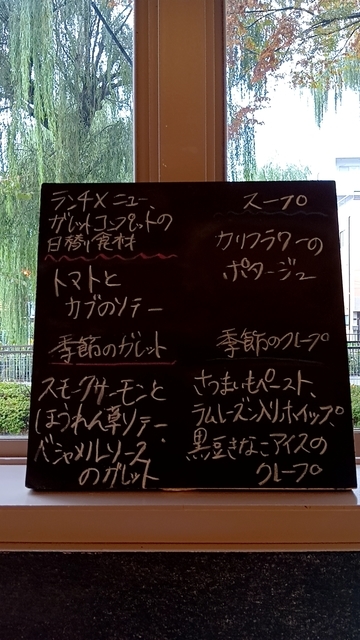 ランチメニュー
ガレットコンプレットの
日替り食材
トマトと
カブのソテー
季節のガレット
スモークサーモンと
ほうれん草ソテー、
ベシャメルソース
のガレット
スープ
カリフラワーの
ポタージュ
季節のクレープ
さつまいもペースト、
ラムレーズン入りホイップ、
黒豆きなこアイスの
クレープ